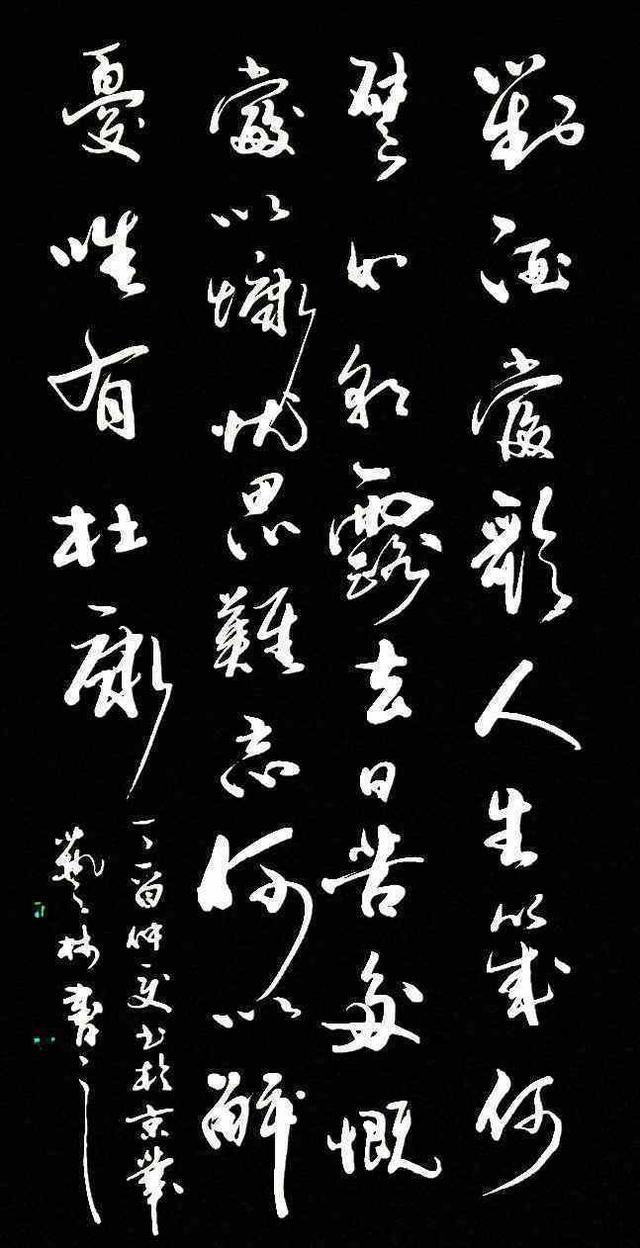 對酒當歌人生幾何
譬如朝露去日苦多慨
當以慷忧思難忘何以解
憂唯有杜康
丁酉仲夏书於京華
林書之